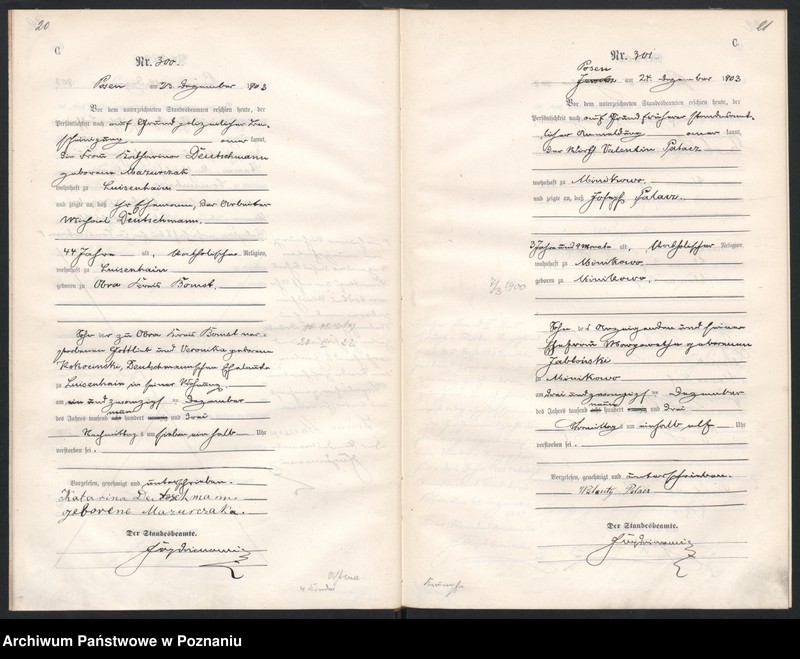 20
C.
Nr. 300.
Posen am 23. Dezember 1903
Vor dem unterzeichneten Standesbeamten erschien heute, der
Persönlichkeit nach auf Grund polizeilicher Be-
scheinigung kannt,
die Frau Katharina Deutschmann
geborene Mazurczak
wohnhaft zu Luisenhain
und zeigte an, daß ihr Ehemann, der Arbeiter
Michael Deutschmann.
44 Jahre alt, katholischer Religion,
wohnhaft zu Luisenhain
geboren zu Obra Kreis Bomst.
Sohn der zu Obra Kreis Bomst ver-
storbenen Gottlieb und Veronika geborene
Deutschmannschen Eheleute
zu Luisenhain in seiner Wohnung
am ein und zwanzigsten Dezember
des Jahres tausend neun hundert und drei
Nachmittags um sieben ein halb Uhr
verstorben sei.
Vorgelesen, genehmigt und unterschrieben.
Katarina Deutschmann
geborene Mazurczaka.
Der Standesbeamte.
21
C.
Nr. 301
Posen am 24. Dezember 1903
Vor dem unterzeichneten Standesbeamten erschien heute, der
Persönlichkeit nach auf Grund früherer standesamt-
licher Anmeldung kannt,
der Wirth Valentin Palacz
wohnhaft zu Minikowo.
und zeigte an, daß Joseph Palacz.
3 Jahre und 9 Monate alt, katholischer Religion,
wohnhaft zu Minikowo
geboren zu Minikowo.
7/3 1900
Sohn des Anzeigenden und seiner
Ehefrau Margarethe geborenen
Jabłoński
zu Minikowo
am drei und zwanzigsten Dezember
des Jahres tausend neun hundert und drei
Vormittags um einhalb elf Uhr
verstorben sei.
Vorgelesen, genehmigt und unterschrieben.
Walenty Palacz
Der Standesbeamte.
Archiwum Państwowe w Poznaniu